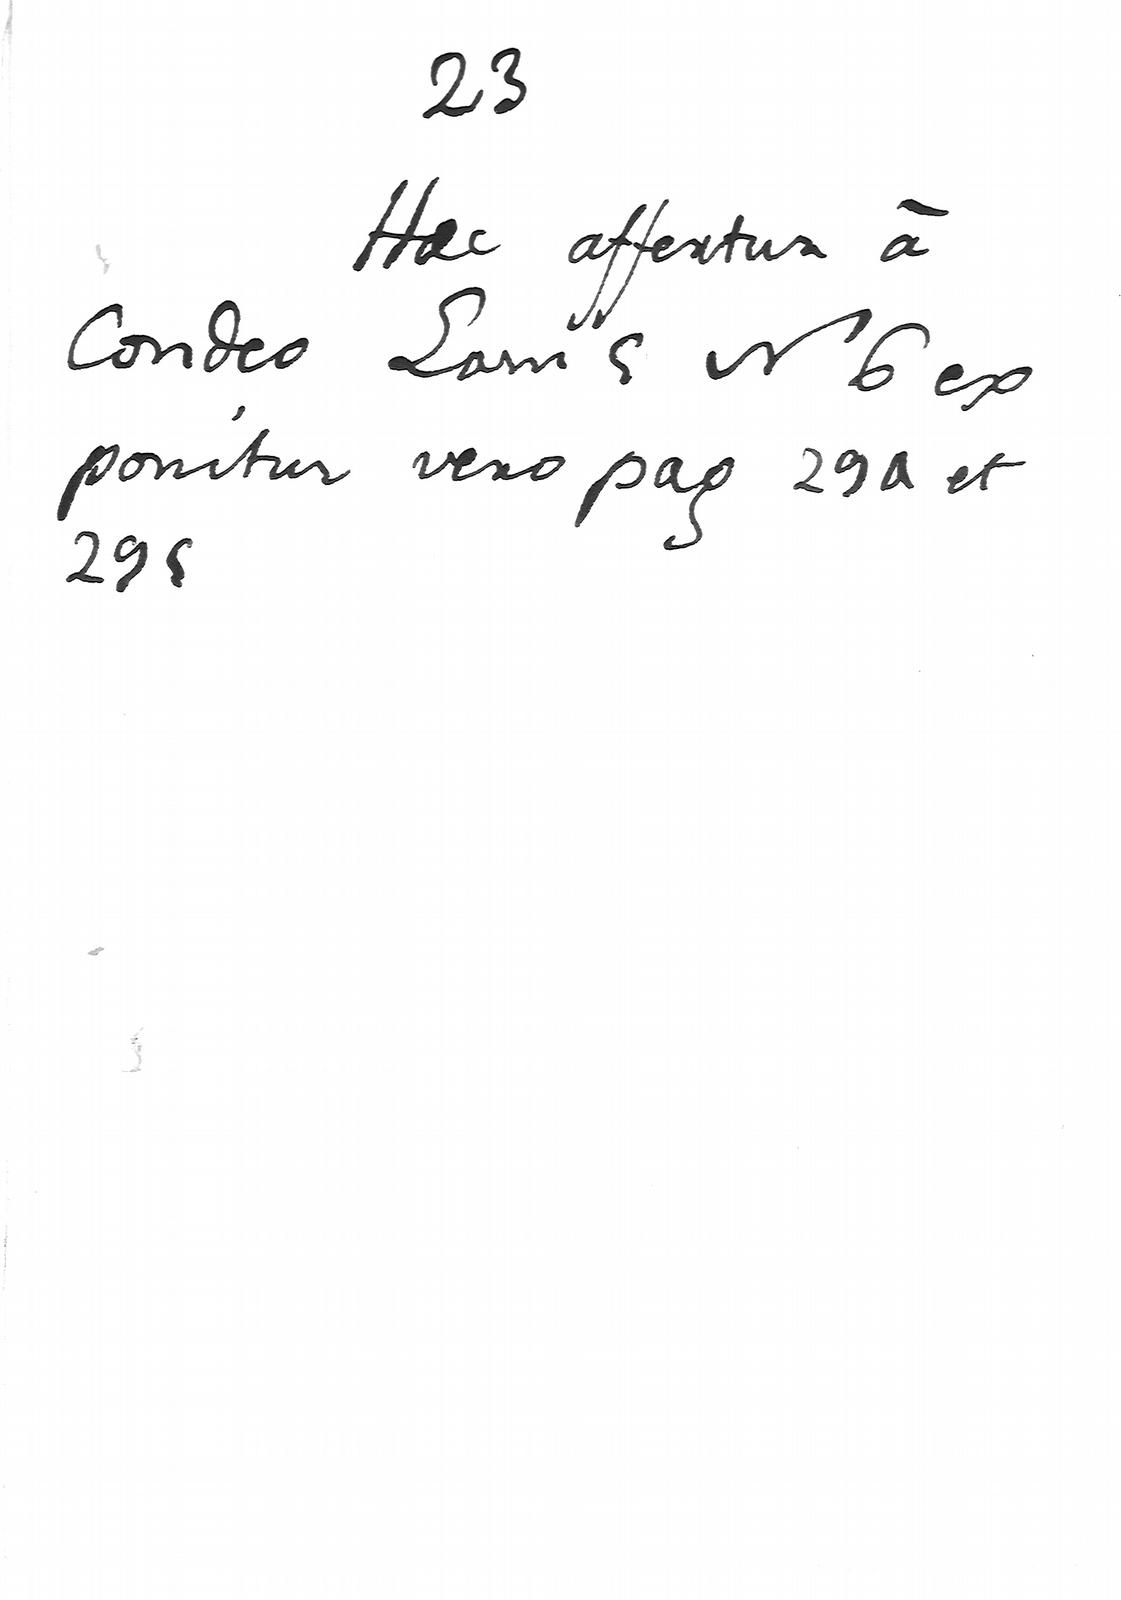 23
Hæc affertur ā
Condeo Lam 5 N 6 ex
ponitur vero pag 29a et
295